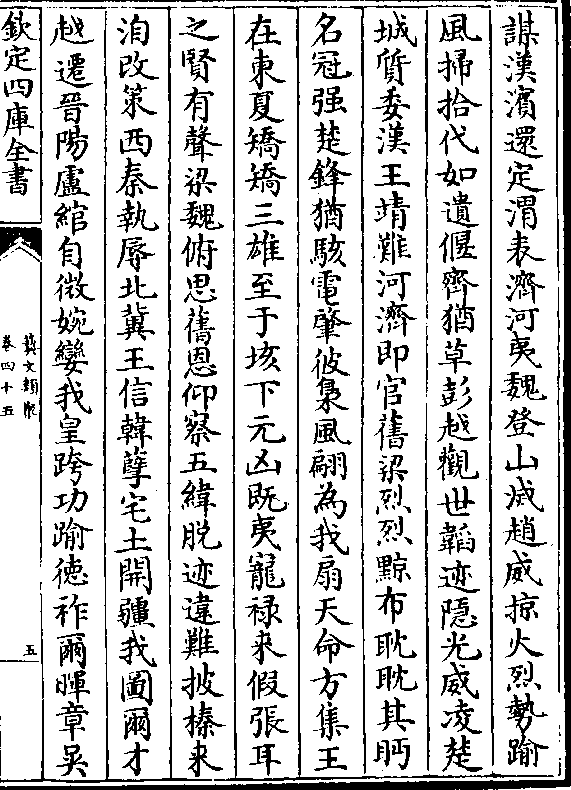 謀漢濱還定渭表濟河夷魏登山滅趙威掠火烈勢踰
風掃拾代如遺偃齊猶草彭越觀世韜迹隱光威凌楚
城質委漢王靖難河濟即官舊梁烈烈黥布耽耽其眄
名冠强楚鋒猶駭電肇彼梟風翩為我扇天命方集王
在東夏矯矯三雄至于垓下元凶既夷寵禄来假張耳
之賢有聲梁魏俯思舊恩仰察五緯脱迹違難披榛来
洎改策西秦執辱北冀王信韓孽宅土開疆我圖爾才
越遷晉陽盧綰自微婉孌我皇跨功踰德祚爾暉章吳
欽定四庫全書
藝文類聚
卷四十五
五